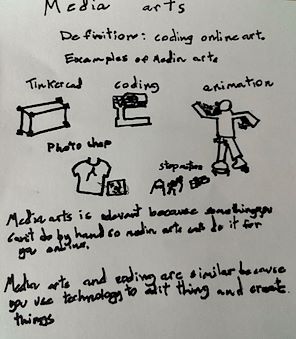 Media arts
Definition: coding online art.
Examples of Media arts
Tinkercad coding animation
Photo shop stopmotion
Media arts is relevant because something you
can't do by hand so media arts can do it for
you online.
Media arts and coding are similar because
you use technology to edit thing and create
things